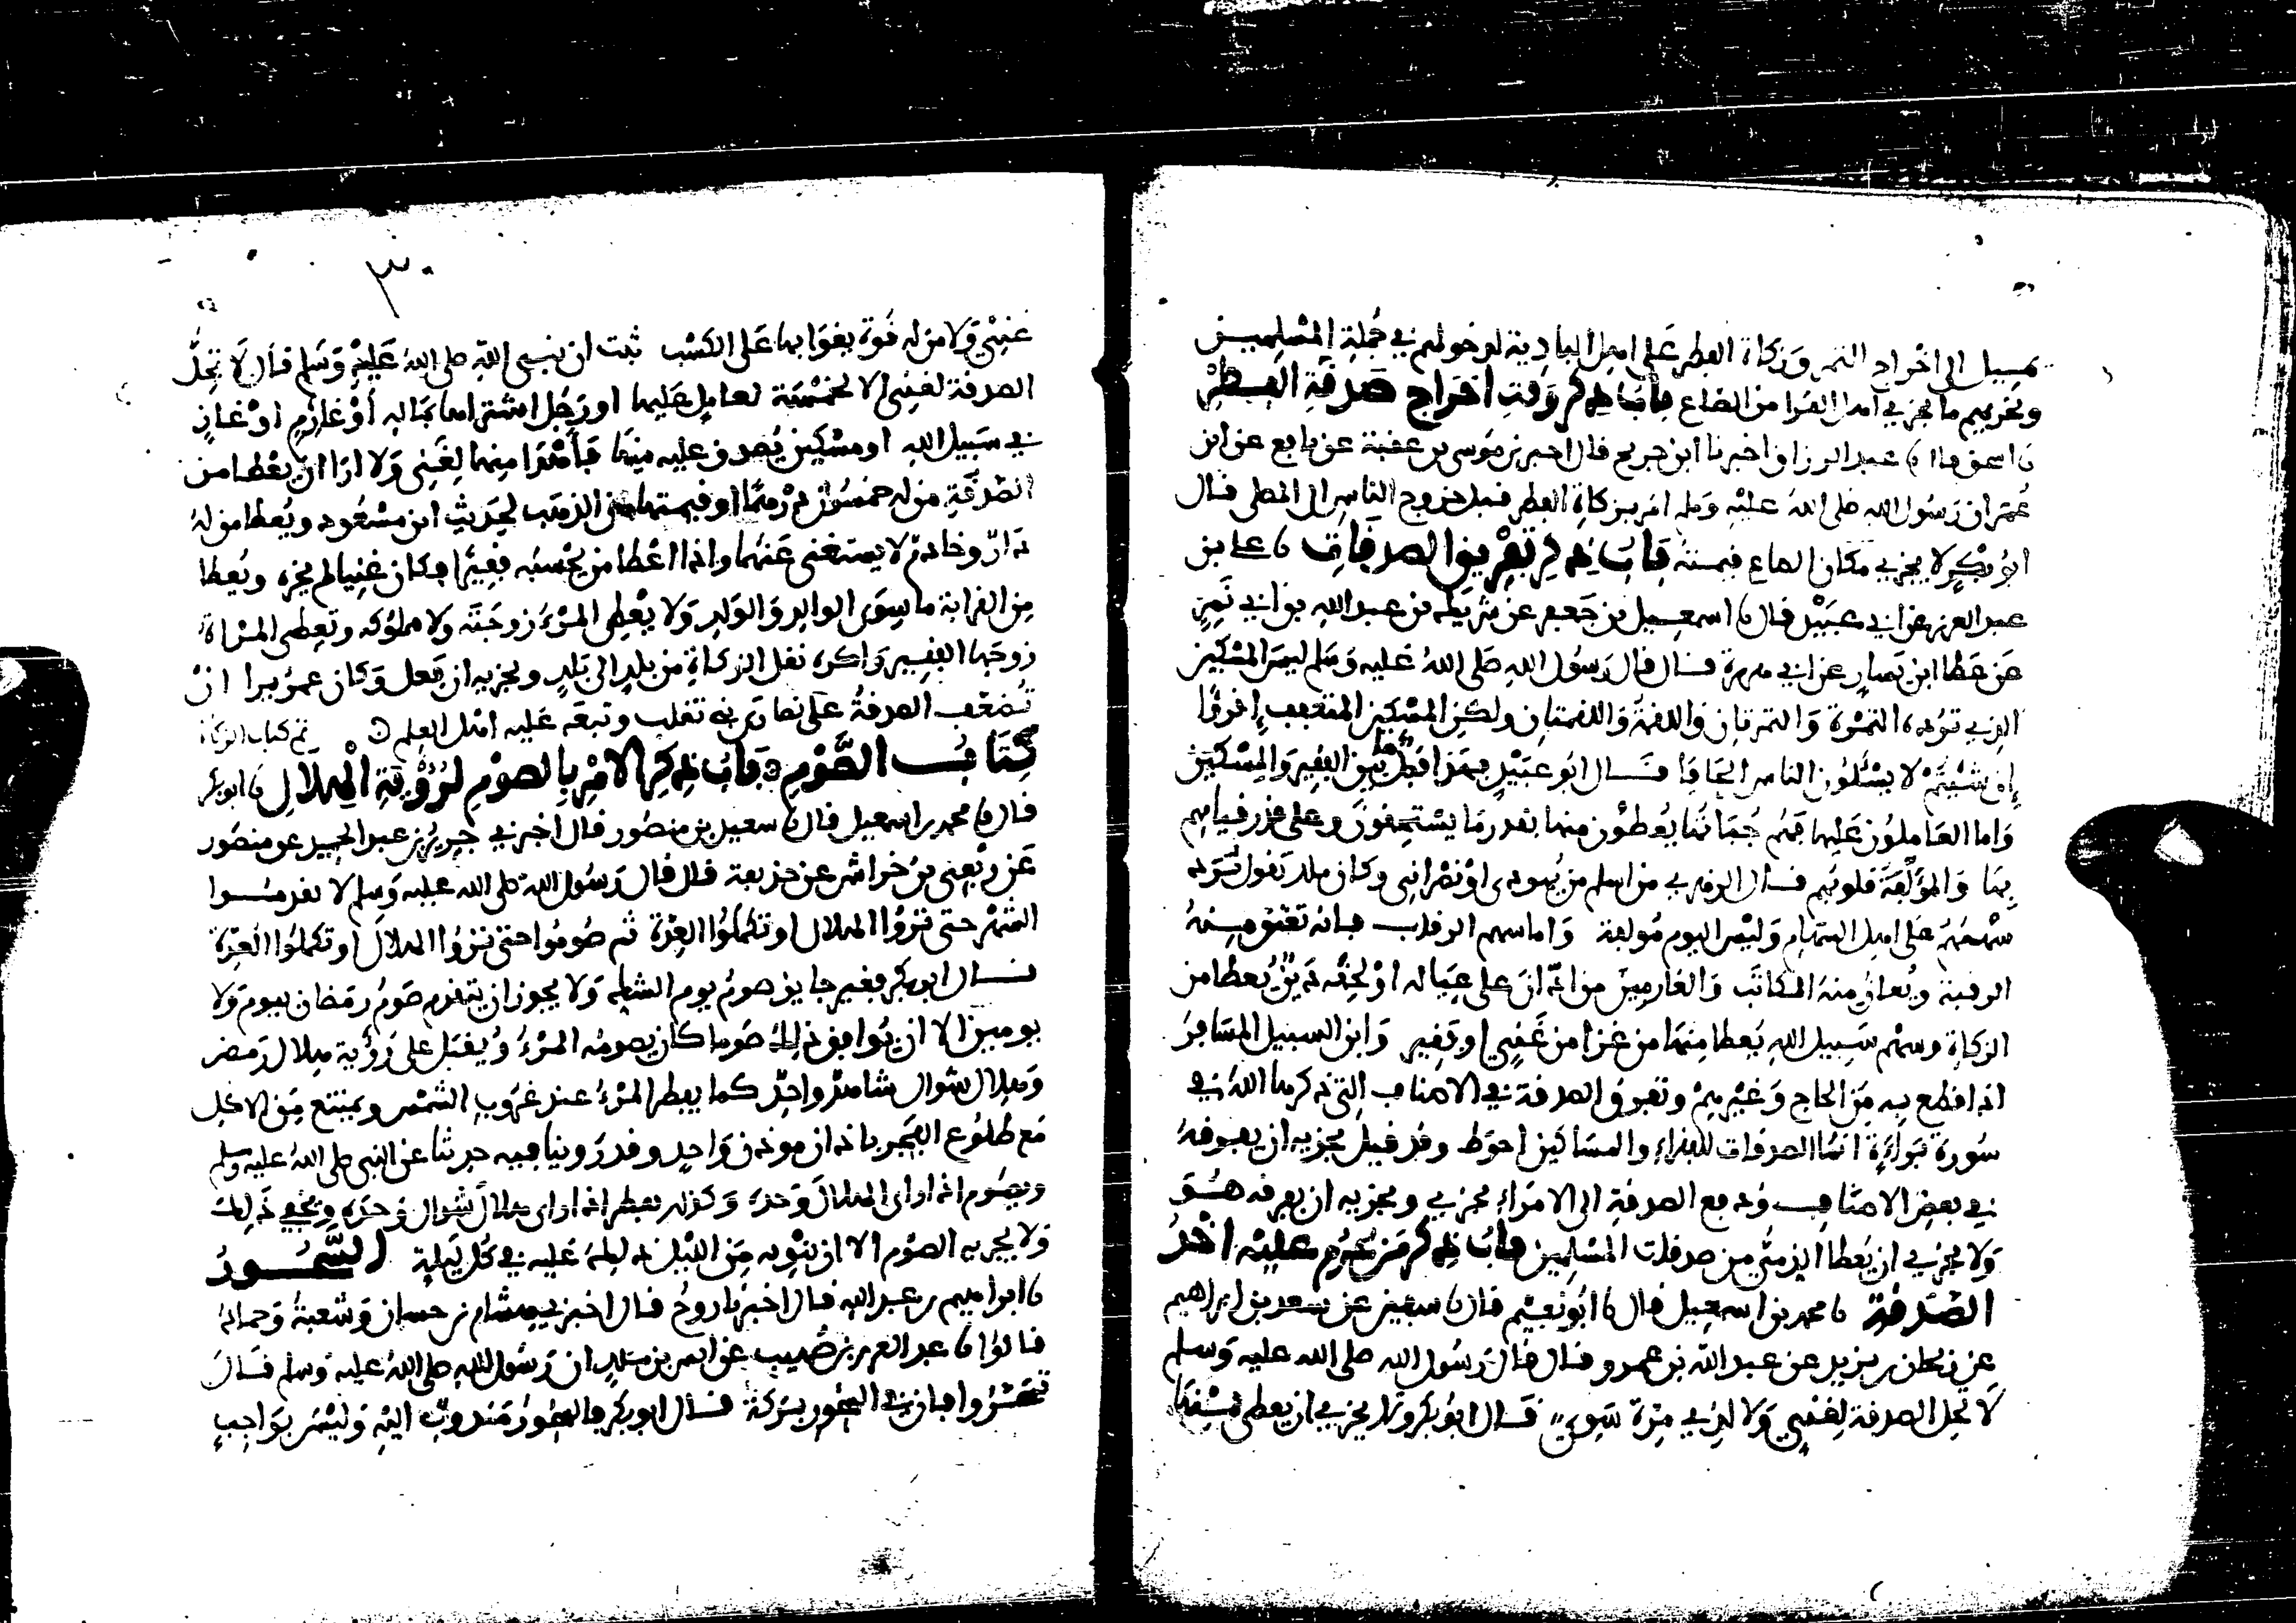 سبيل الى اخراج التمر وزكاة الفطر على اهل البادية لدخولهم في جملة المسلمين
ويجزيهم ما يجزي اهل القرا من الصاع باب ذكر وقت اخراج صدقة الفطر
نا اسحق نا عبد الرزاق اخبرنا ابن جريج قال اخبرني موسى بن عقبة عن نابع عن ابن
عمر ان رسول الله صلى الله عليه وسلم امر بزكاة الفطر قبل خروج الناس الى المصلى قال
ابو بكر لا يجزي مكان الصاع قيمته باب ذكر تفريق الصدقات نا علي بن
عبد العزيز عن ابي عبيد قال نا اسمعيل بن جعفر عن شريك بن عبد الله بن ابي نمر
عن عطا ابن يسار عن ابي هريرة قال قال رسول الله صلى الله عليه وسلم ليس المسكين
الذي تؤده التمرة والتمرتان واللقمة واللقمتان ولكن المسكين المتعفف اقرؤا
إن شئتم لا يسئلون الناس الحافا قال ابو عبيد فهذا فصل ما بين الفقير والمسكين
واما العاملون عليها فهم جباتها يعطون منها بقدر ما يستحقون وعلى قدر قيامهم
بها والمؤلفة قلوبهم قال الزهري من اسلم من يهودي او نصراني وكان ملك يقول يرد
سهمهم على اهل السهام وليس اليوم مولفة واما سهم الرقاب فانه تعتق منه
الرقبة ويعان منه المكاتب والغارمين من ادان على عياله او لحقه دين يعطا من
الزكاة وسهم سبيل الله يعطا منها من غزا من غني او فقير وابن السبيل المسافر
اذا قطع به من الحاج وغيرهم وتفرق الصدقة في الاصناف التي ذكرها الله في
سورة براءة انما الصدقات للفقراء والمساكين احوط وقد قيل يجزيه ان يصرفه
في بعض الاصناف ودفع الصدقة الى الامراء يجزي ويجزيه ان يفرقه هو
ولا يجزي ان يعطا الذمي من صدقات المسلمين باب ذكر من يحرم عليه اخذ
الصدقة نا محمد بن اسمعيل قال نا ابو نعيم قال نا سفين عن سعد بن ابراهيم
عن ريحان بن يزيد عن عبد الله بن عمرو قال قال رسول الله صلى الله عليه وسلم
لا تحل الصدقة لغني ولا لذي مرة سوي قال ابو بكر ولا يجزي ان يعطى منها
٣٠
غني ولا من له قوة يقوا بها على الكسب ثبت ان نبي الله صلى الله عليه وسلم قال لا تحل
الصدقة لغني الا لخمسة لعامل عليها او رجل اشتراها بماله او غارم او غاز
في سبيل الله او مسكين يصدق عليه منها فاهدا منها لغني ولا ارا ان يعطا من
الصدقة من له خمسون درهما او قيمتها من الذهب لحديث ابن مسعود ويعطا من له
دار وخادم لا يستغني عنهما واذا اعطا من يحسبه فقيرا فكان غنيا لم يجزه ويعطا
من القرابة ما سوى الوالد والولد ولا يعطي المرء زوجته ولا مملوكه وتعطي المراة
زوجها الفقير واكره نقل الزكاة من بلد الى بلد ويجزيه ان فعل وكان عمر يرا ان
تضعف الصدقة على نصارى بني تغلب وتبعه عليه اهل العلم تم كتاب الزكاة
كتاب الصوم باب ذكر الامر بالصوم لرؤية الهلال نا ابو بكر
قال نا محمد بن اسمعيل قال نا سعيد بن منصور قال اخبرني جرير بن عبد الحميد عن منصور
عن ربعي بن خراش عن حذيفة قال قال رسول الله صلى الله عليه وسلم لا تقدموا
الشهر حتى تروا الهلال او تكملوا العدة ثم صوموا حتى تروا الهلال او تكملوا العدة
قال ابو بكر فغير جايز صوم يوم الشك ولا يجوز ان يتقدم صوم رمضان بيوم ولا
يومين الا ان يوافق ذلك صوما كان يصومه المرء ويقبل على رؤية هلال رمضن
وهلال شوال شاهد واحد كما يفطر المرء عند غروب الشمس ويمتنع من الاكل
مع طلوع الفجر باذان موذن واحد وقد روينا فيه حديثا عن النبي صلى الله عليه وسلم
ويصوم اذا راى الهلال وحده وكذلك يفطر اذا راى هلال شوال وحده ويخفي ذلك
ولا يجزيه الصوم الا ان ينويه من الليل ذلك عليه في كل ليلة السحور
نا ابراهيم بن عبد الله قال اخبرنا روح قال اخبرني هشام بن حسان وشعبة وحماد
قالوا نا عبد العزيز بن صهيب عن انس بن ملك ان رسول الله صلى الله عليه وسلم قال
تسحروا فان في السحور بركة قال ابو بكر فالسحور مندوب اليه وليس بواجب